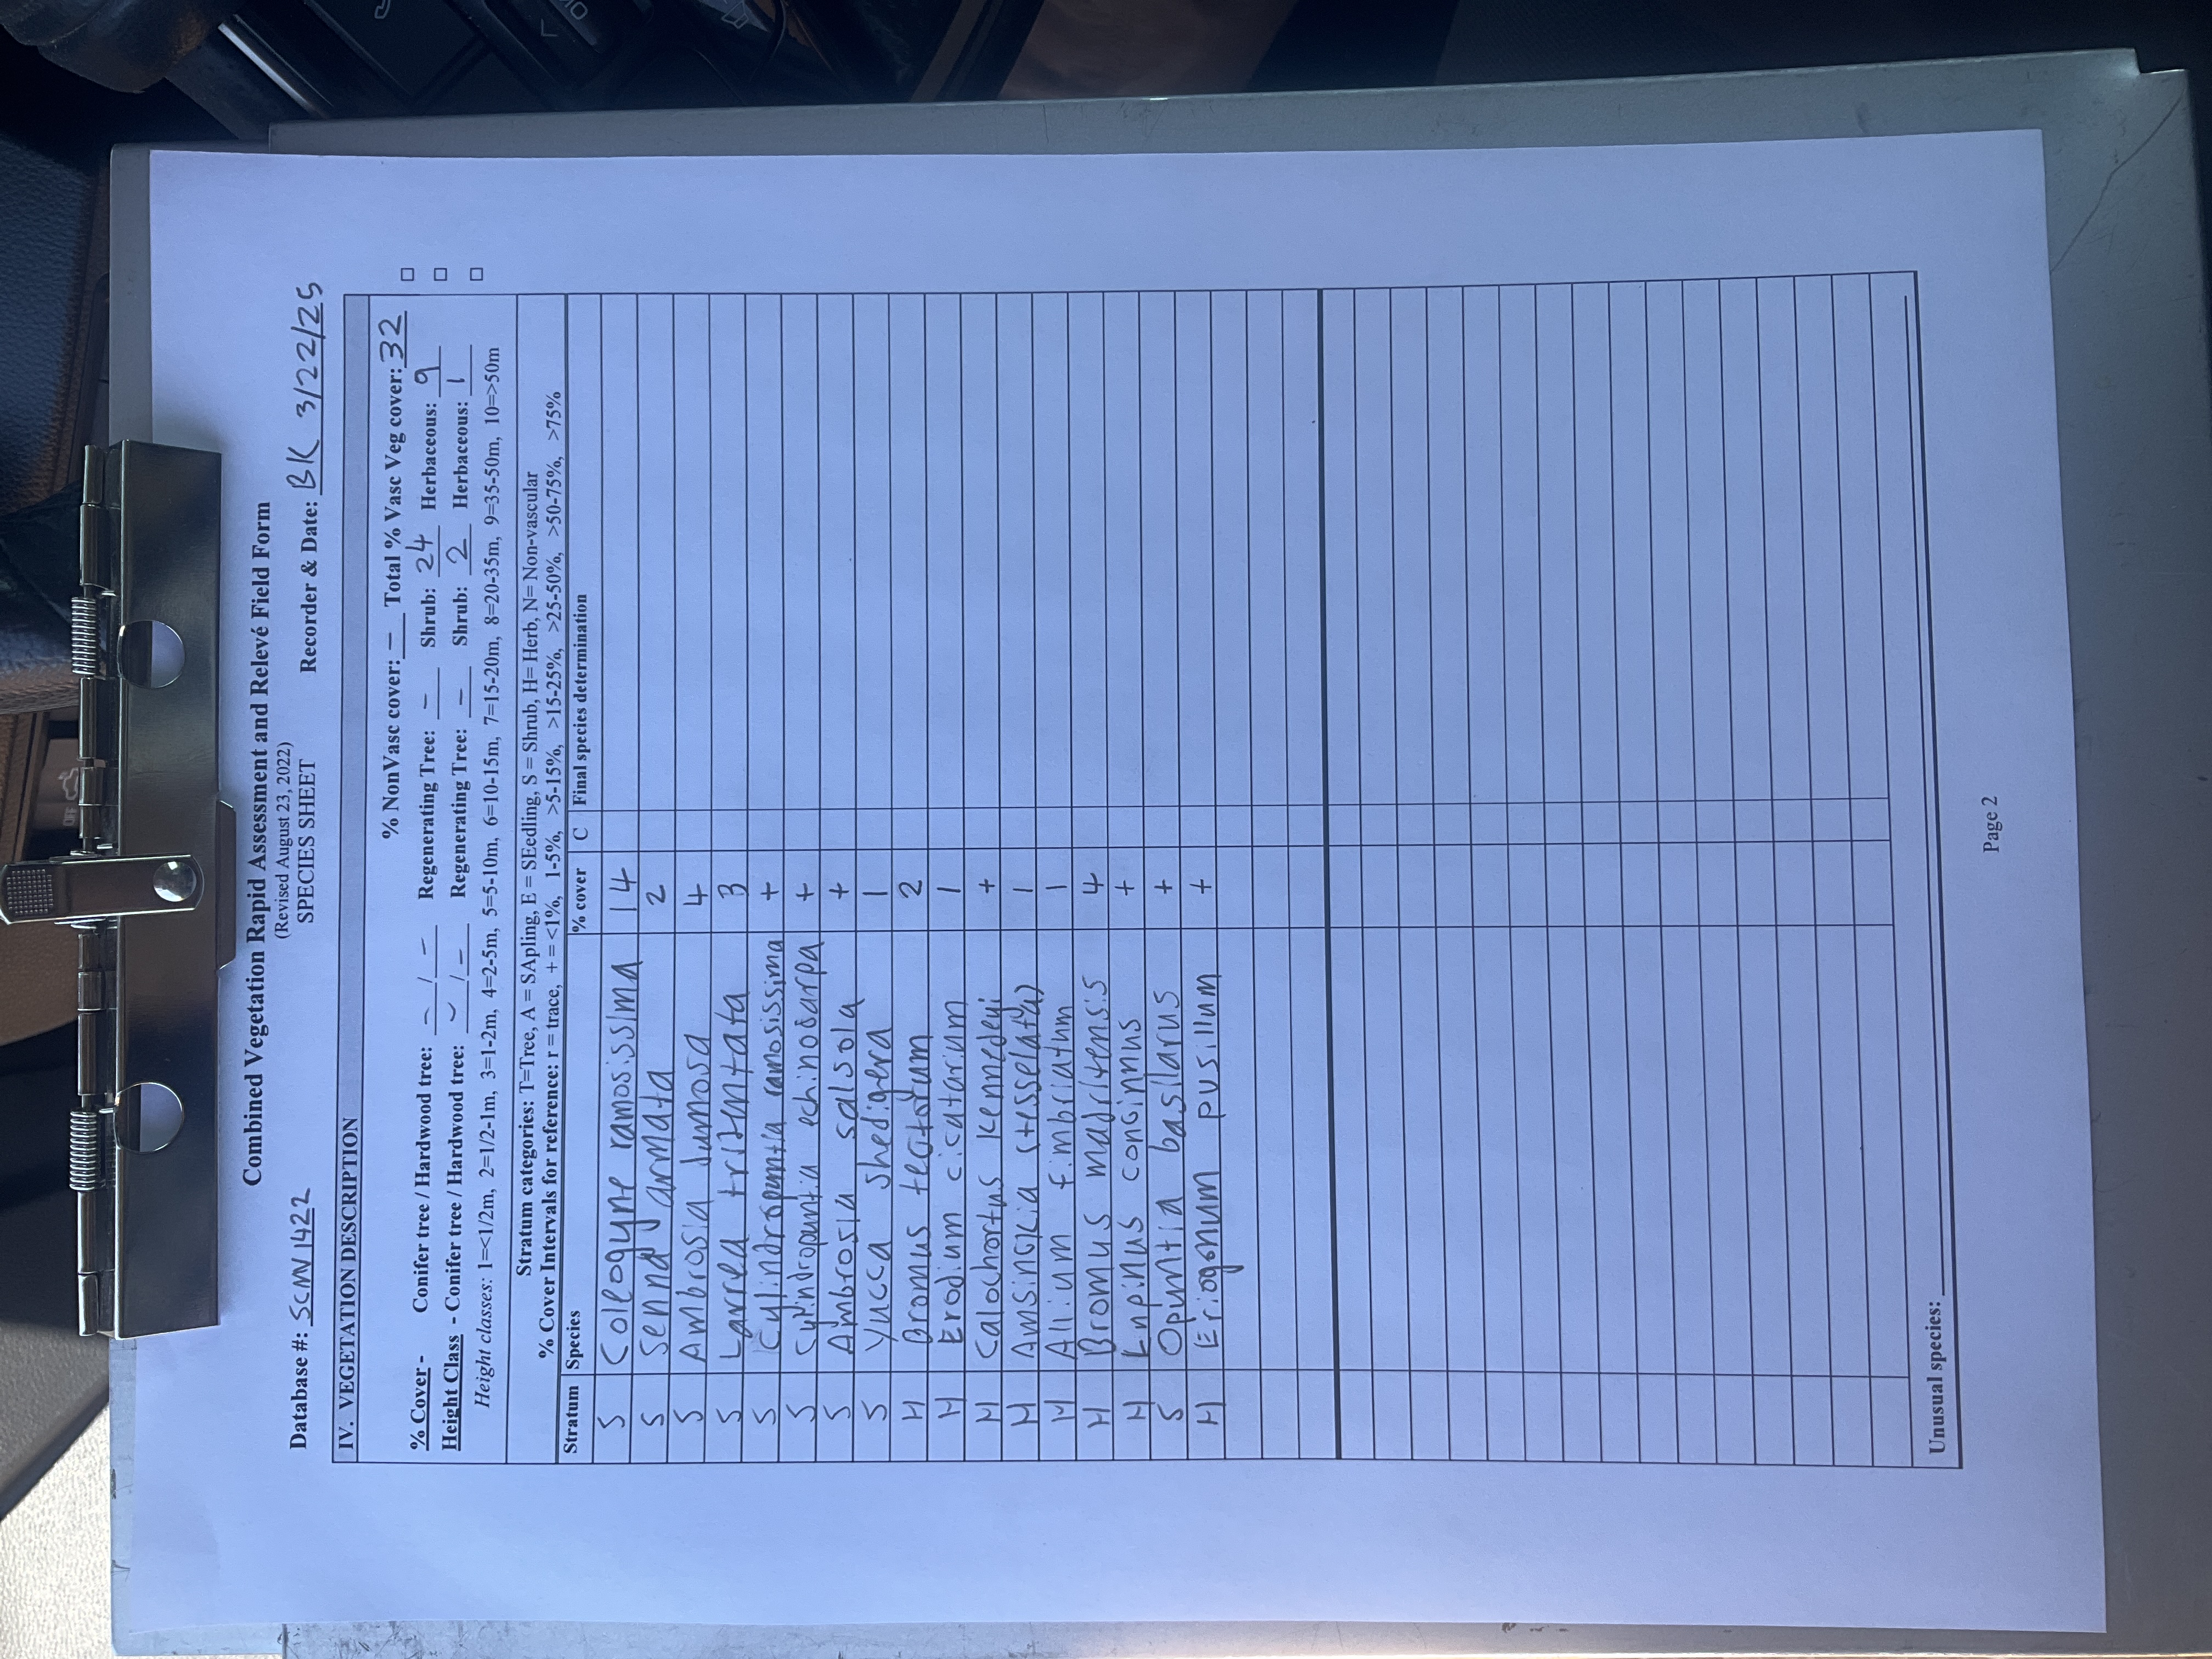 Combined Vegetation Rapid Assessment and Relevé Field Form
(Revised August 23, 2022)
SPECIES SHEET
Database #: SCMV1422 Recorder & Date: BK 3/22/25
IV. VEGETATION DESCRIPTION
% NonVasc cover: – Total % Vasc Veg cover: 32
% Cover - Conifer tree / Hardwood tree: – / – Regenerating Tree: – Shrub: 24 Herbaceous: 9
Height Class - Conifer tree / Hardwood tree: – / – Regenerating Tree: – Shrub: 2 Herbaceous: 1
Height classes: 1=<1/2m, 2=1/2-1m, 3=1-2m, 4=2-5m, 5=5-10m, 6=10-15m, 7=15-20m, 8=20-35m, 9=35-50m, 10=>50m
Stratum categories: T=Tree, A = SApling, E = SEedling, S = Shrub, H= Herb, N= Non-vascular
% Cover Intervals for reference: r = trace, + = <1%, 1-5%, >5-15%, >15-25%, >25-50%, >50-75%, >75%
Stratum Species % cover C Final species determination
S Coleogyne ramosissima 14
S Senna armata 2
S Ambrosia dumosa 4
S Larrea tridentata 3
S Cylindropuntia ramosissima +
S Cylindropuntia echinocarpa +
S Ambrosia salsola +
S Yucca shedigera 1
H Bromus tectorum 2
H Erodium cicutarium 1
H Calochortus kennedeyi +
H Amsinckia (tesselata) 1
H Allium fimbriatum 1
H Bromus madritensis 4
H Lupinus concinnus +
S Opuntia basilarus +
H Eriogonum pusillum +
Unusual species:
Page 2
OFF